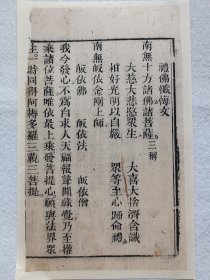 禮佛懺悔文
南無十方諸佛諸菩薩 三稱
大慈大悲愍眾生 大喜大捨濟含識
相好光明以自嚴 眾等至心歸命禮
南無皈依金剛上師
皈依佛 皈依法 皈依僧
我今發心不為自求人天福報聲聞緣覺乃至權
乘諸位菩薩唯依最上乘發菩提心願與法界眾
生一時同得阿耨多羅三藐三菩提